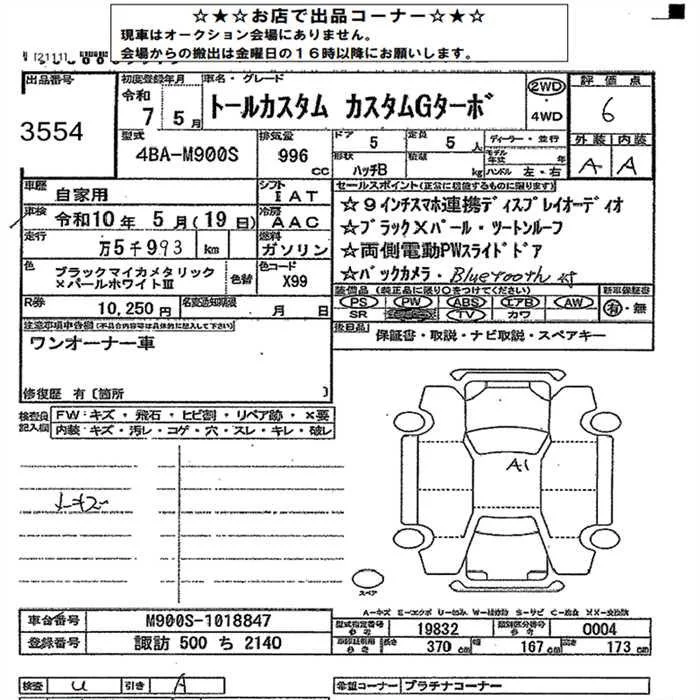 ☆★☆お店で出品コーナー☆★☆
現車はオークション会場にありません。
会場からの搬出は金曜日の16時以降にお願いします。
出品番号
3554
初度登録年月
令和
7 5月
車名・グレード
トールカスタム カスタムGターボ
2WD
・
4WD
評価点
6
外装 内装
A A
型式
4BA-M900S
排気量
996
cc
ドア
5
定員
5人
形状
ハッチB
積載
kg
ディーラー・並行
モデル年式 年
ハンドル 左・右
車歴
自家用
シフト
IAT
車検
令和10年 5月(19日)
冷房
AAC
走行
万5千993 km
燃料
ガソリン
色
ブラックマイカメタリック
×パールホワイトⅢ
色替
色コード
X99
R券
10,250円
名変通知期限
月 日
セールスポイント(正常に機能するものに限ります)
☆9インチスマホ連携ディスプレイオーディオ
☆ブラック×パール・ツートンルーフ
☆両側電動PWスライドドア
☆バックカメラ・Bluetooth
装備品(純正品に限り○をつけてください)
PS PW ABS エアB AW
SR TV カワ
新車保証書
有・無
後日品
保証書・取説・ナビ取説・スペアキー
注意事項申告欄(不具合内容等は具体的に記入して下さい)
ワンオーナー車
修復歴 有〔箇所 〕
検査員
記入欄
FW:キズ・飛石・ヒビ割・リペア跡・×要
内装:キズ・汚レ・コゲ・穴・スレ・キレ・破レ
A1
スペア
A-キズ E-エクボ U-凹み W-補修跡 S-サビ C-腐食 XX-交換済
車台番号
M900S-1018847
登録番号
諏訪 500 ち 2140
型式指定番号
参考
19832
類別区分番号
参考
0004
参考
長さ
370 cm
幅
167 cm
高さ
173 cm
検査
U
引き
A
希望コーナー
プラチナコーナー